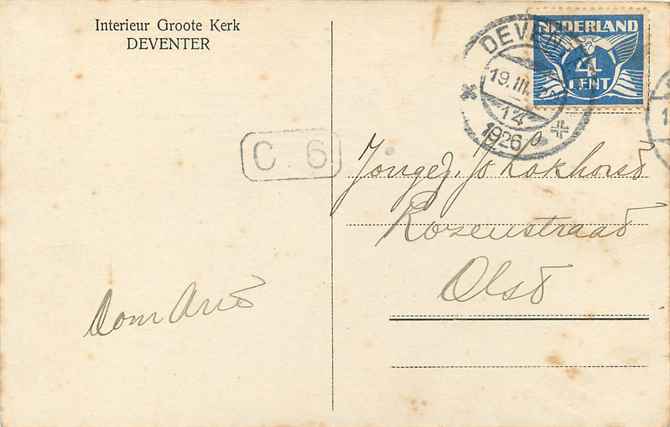 Interieur Groote Kerk
DEVENTER
DEVENTER
19.III.
14
1926
NEDERLAND
4
CENT
C. 6
Jongej. J. Lokhorst
Rozenstraat
Olst
Oom Arie